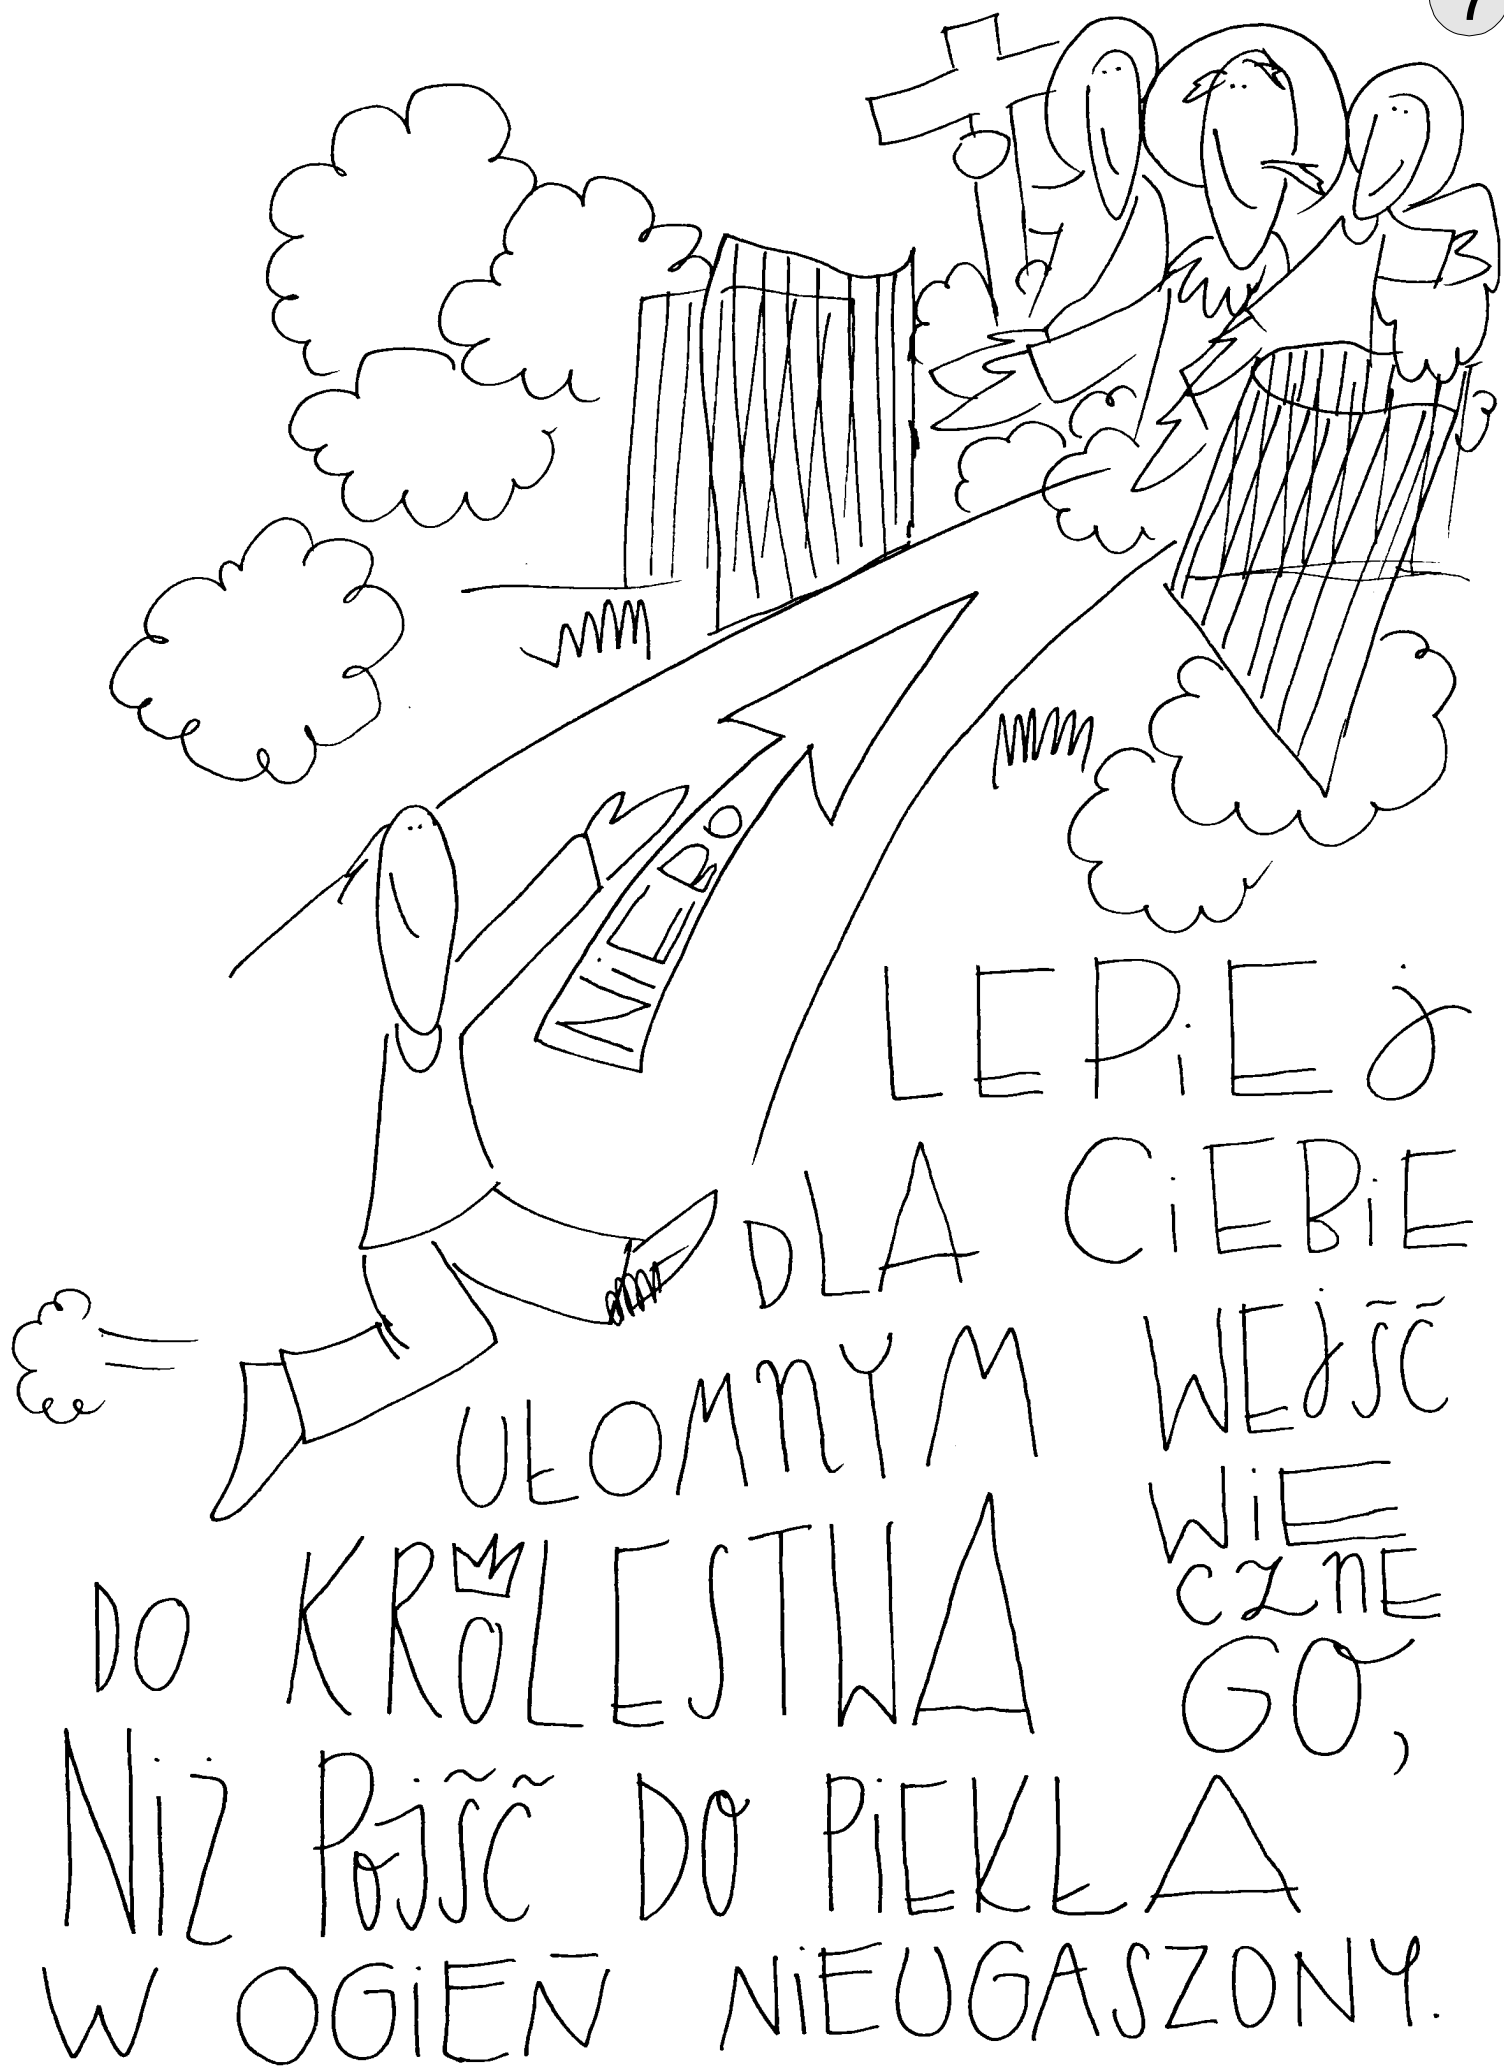 7
NIEBO
LEPIEJ
DLA CIEBIE
UŁOMNYM WEJŚĆ
DO KRÓLESTWA WIE
CZNE
GO,
NIŻ PÓJŚĆ DO PIEKŁA
W OGIEŃ NIEUGASZONY.